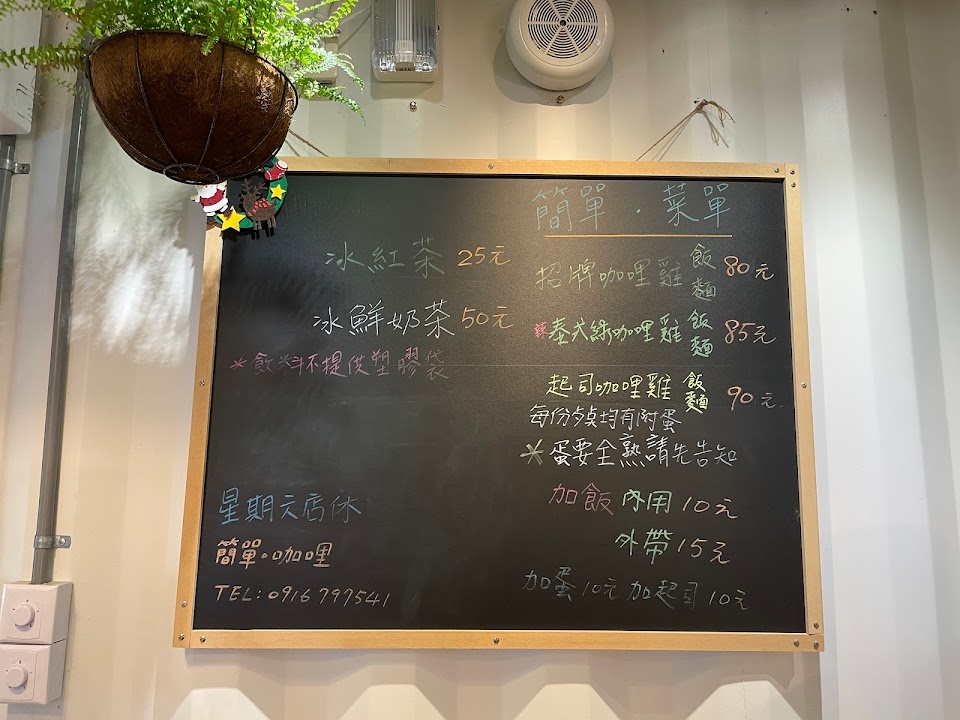 簡單・菜單
招牌咖哩雞 飯 麵 80元
辣 泰式綠咖哩雞 飯 麵 85元
起司咖哩雞 飯 麵 90元
每份歺均有附蛋
*蛋要全熟請先告知
加飯 內用 10元
外帶 15元
加蛋 10元 加起司 10元
冰紅茶 25元
冰鮮奶茶 50元
*飲料不提供塑膠袋
星期六店休
簡單・咖哩
TEL:0916797541